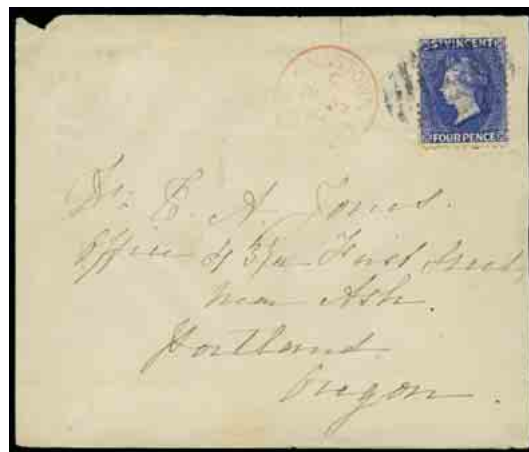 ST VINCENT
FOUR PENCE
Dr. E. A. Jones.
Office First Street
Near Ash.
Portland
Oregon.